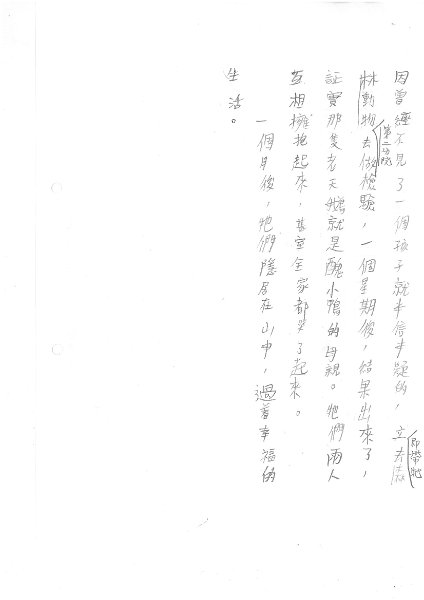 因曾經不見了一個孩子就半信半疑的，立去森
即帶牠
林動物去做檢驗，一個星期後，結果出來了，
第二分院
証實那隻老天鵝就是醜小鴨的母親。牠們兩人
互相擁抱起來，甚至全家都哭了起來。
一個月後，牠們隱居在山中，過着幸福的
生活。